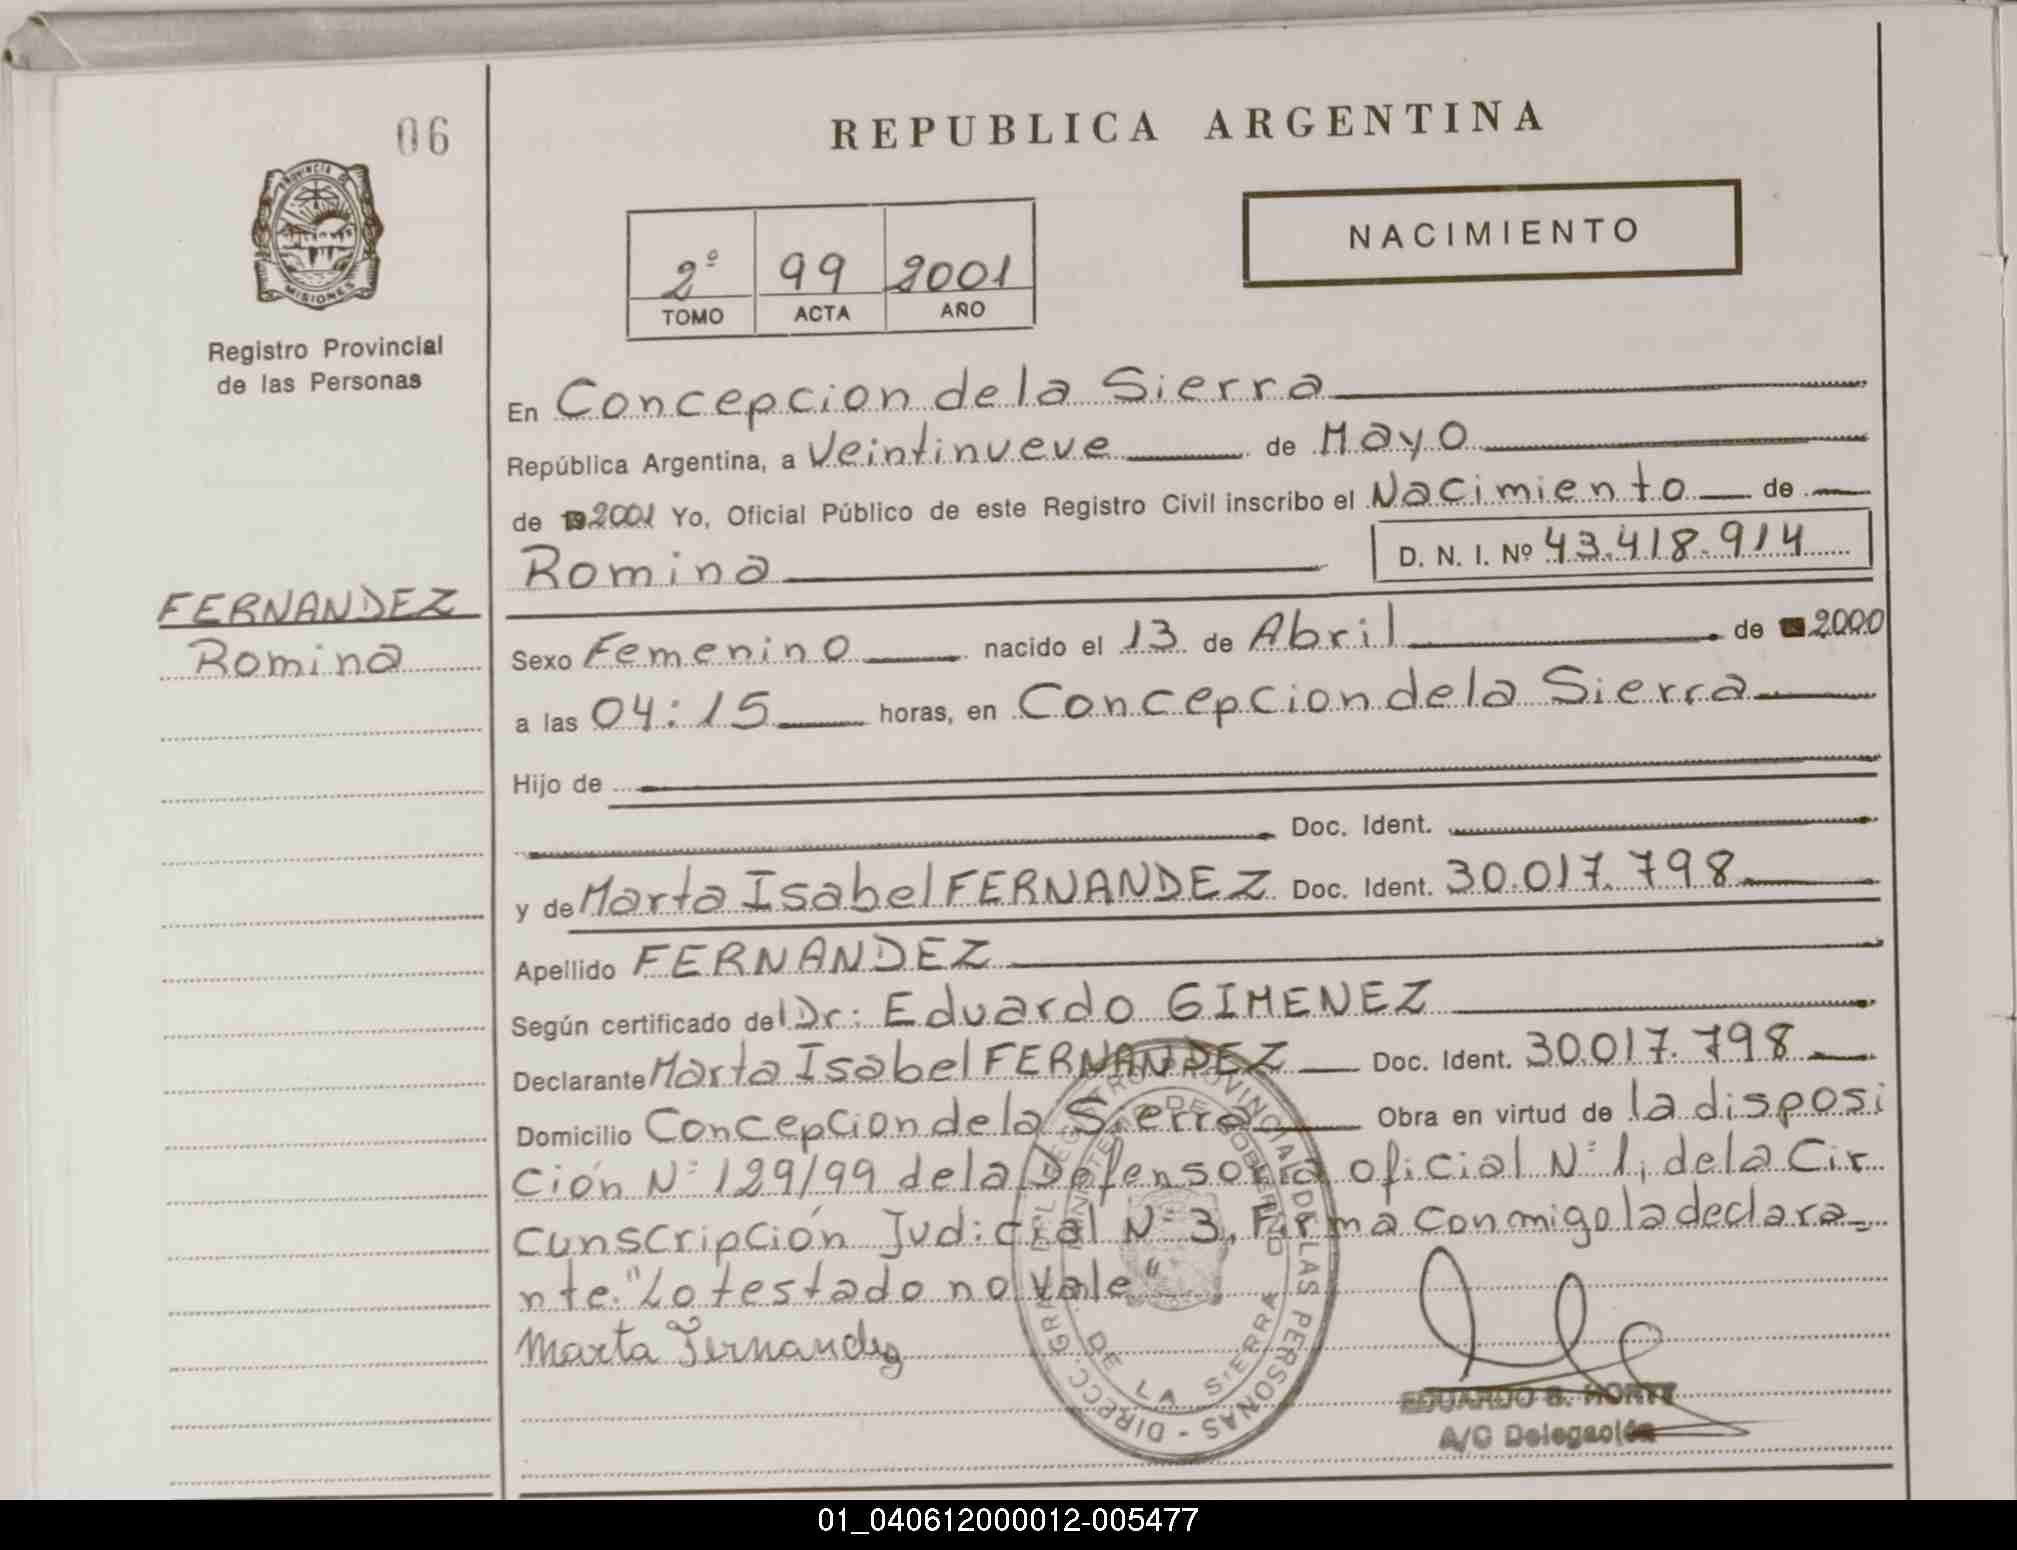 06
REPUBLICA ARGENTINA
PROVINCIA DE
MISIONES
Registro Provincial
de las Personas
2º 99 2001
TOMO ACTA AÑO
NACIMIENTO
En Concepcion de la Sierra
República Argentina, a Veintinueve de Mayo
de 19 2001 Yo, Oficial Público de este Registro Civil inscribo el Nacimiento de
Romina
D. N. I. Nº 43.418.914
FERNANDEZ
Romina
Sexo Femenino nacido el 13 de Abril de 2000
a las 04:15 horas, en Concepcion de la Sierra
Hijo de
Doc. Ident.
y de Marta Isabel FERNANDEZ Doc. Ident. 30.017.798
Apellido FERNANDEZ
Según certificado del Dr: Eduardo GIMENEZ
Declarante Marta Isabel FERNANDEZ Doc. Ident. 30.017.798
Domicilio Concepcion de la Sierra Obra en virtud de la disposi
ción Nº 129/99 de la Defensoria oficial Nº 1, de la Cir
cunscripción Judicial Nº 3. Firma conmigo la declara-
nte. "Lo testado no vale"
Marta Fernandez
DIRECC. GRAL. DEL REGISTRO PROVINCIAL DE LAS PERSONAS -
MINISTERIO DE GOBIERNO
DE LA SIERRA
EDUARDO B.
A/C Delegación
01_040612000012-005477